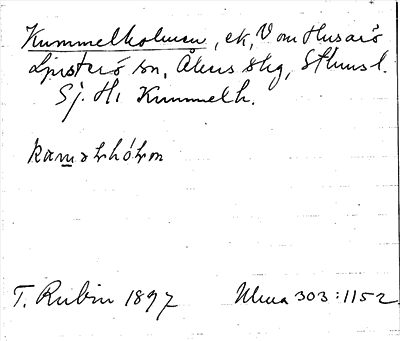 Kummelholmen, ek, V om Husarö
Ljusterö sn, Åkers skg, Sthms l.
Sj. H. Kummelh.
kumalhólm
T. Rubin 1897 Ulma 303:1152